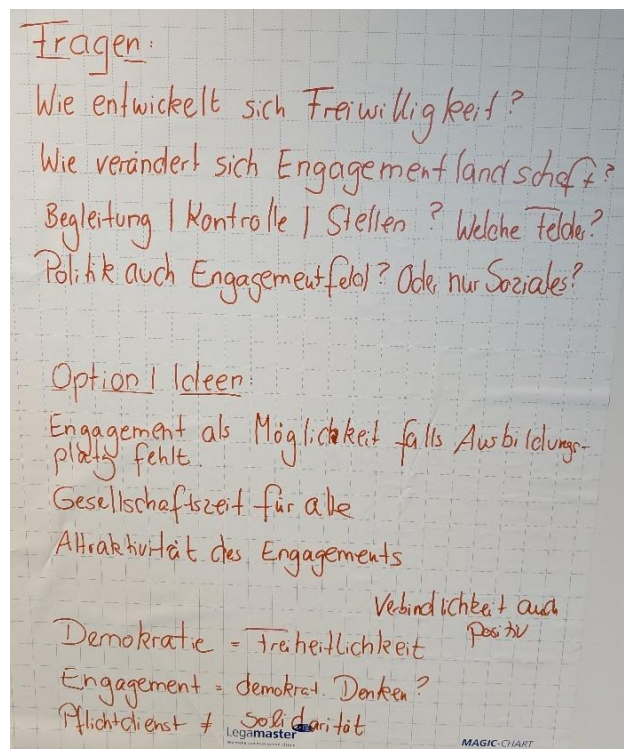 Fragen:
Wie entwickelt sich Freiwilligkeit?
Wie verändert sich Engagementlandschaft?
Begleitung | Kontrolle | Stellen? Welche Felder?
Politik auch Engagementfeld? Oder nur Soziales?
Option | Ideen:
Engagement als Möglichkeit falls Ausbildungs-
platz fehlt.
Gesellschaftszeit für alle
Attraktivität des Engagements
Verbindlichkeit auch
positiv
Demokratie = Freiheitlichkeit
Engagement = demokrat. Denken?
Pflichtdienst ≠ Solidarität
Legamaster
MAGIC-CHART